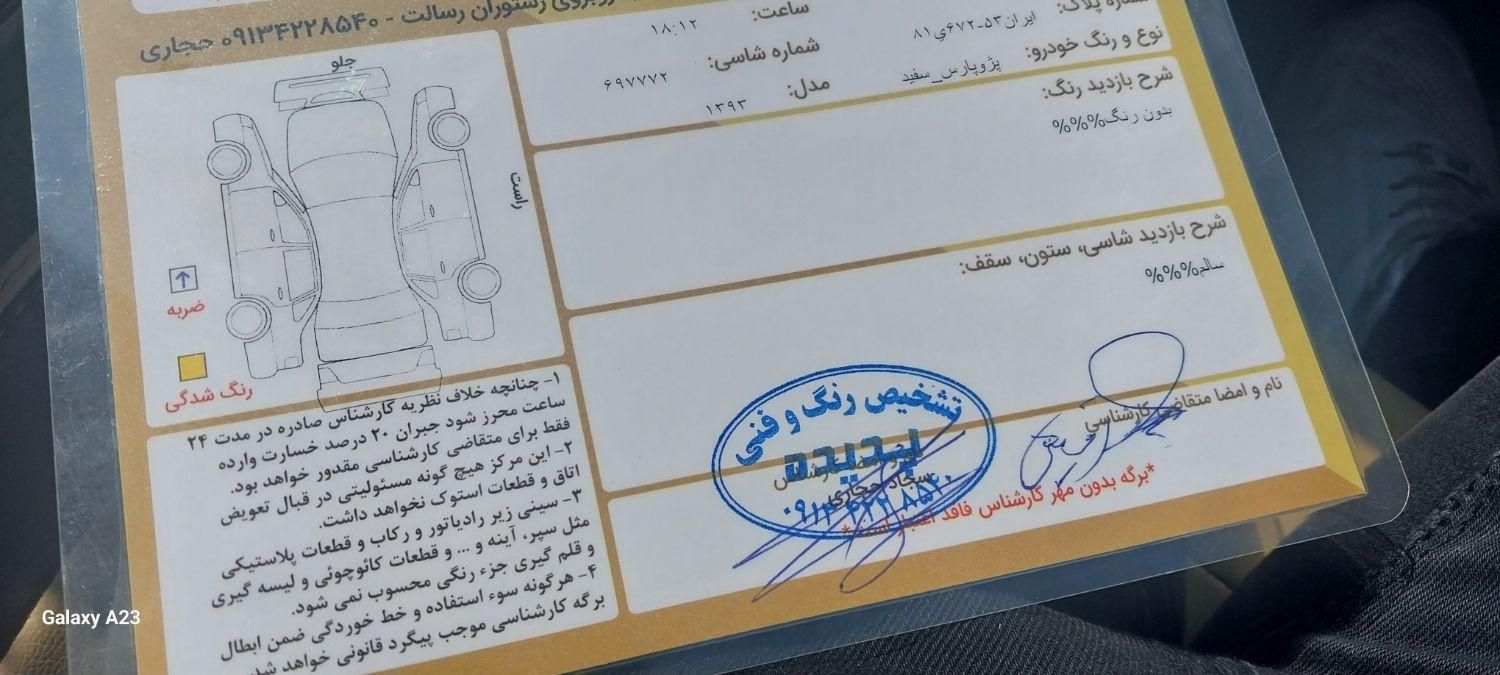 روبروی رستوران رسالت - ۰۹۱۳۴۲۲۸۵۴۰ حجاری
شماره پلاک: ایران۵۳-۶۷۲ی۸۱
ساعت: ۱۸:۱۲
نوع و رنگ خودرو: پژوپارس_سفید
شماره شاسی: ۶۹۷۷۷۲
مدل: ۱۳۹۳
شرح بازدید رنگ:
بدون رنگ%%%
شرح بازدید شاسی، ستون، سقف:
سالم%%%
نام و امضا متقاضی کارشناسی
تشخیص رنگ و فنی
پدیده
سجاد حجاری
*برگه بدون مهر کارشناس فاقد اعتبار است*
جلو
راست
ضربه
رنگ شدگی
۱- چنانچه خلاف نظریه کارشناس صادره در مدت ۲۴
ساعت محرز شود جبران ۲۰ درصد خسارت وارده
فقط برای متقاضی کارشناسی مقدور خواهد بود.
۲- این مرکز هیچ گونه مسئولیتی در قبال تعویض
اتاق و قطعات استوک نخواهد داشت.
۳- سینی زیر رادیاتور و رکاب و قطعات پلاستیکی
مثل سپر، آینه و ... و قطعات کائوچوئی و لیسه گیری
و قلم گیری جزء رنگی محسوب نمی شود.
۴- هرگونه سوء استفاده و خط خوردگی ضمن ابطال
برگه کارشناسی موجب پیگرد قانونی خواهد شد.
Galaxy A23